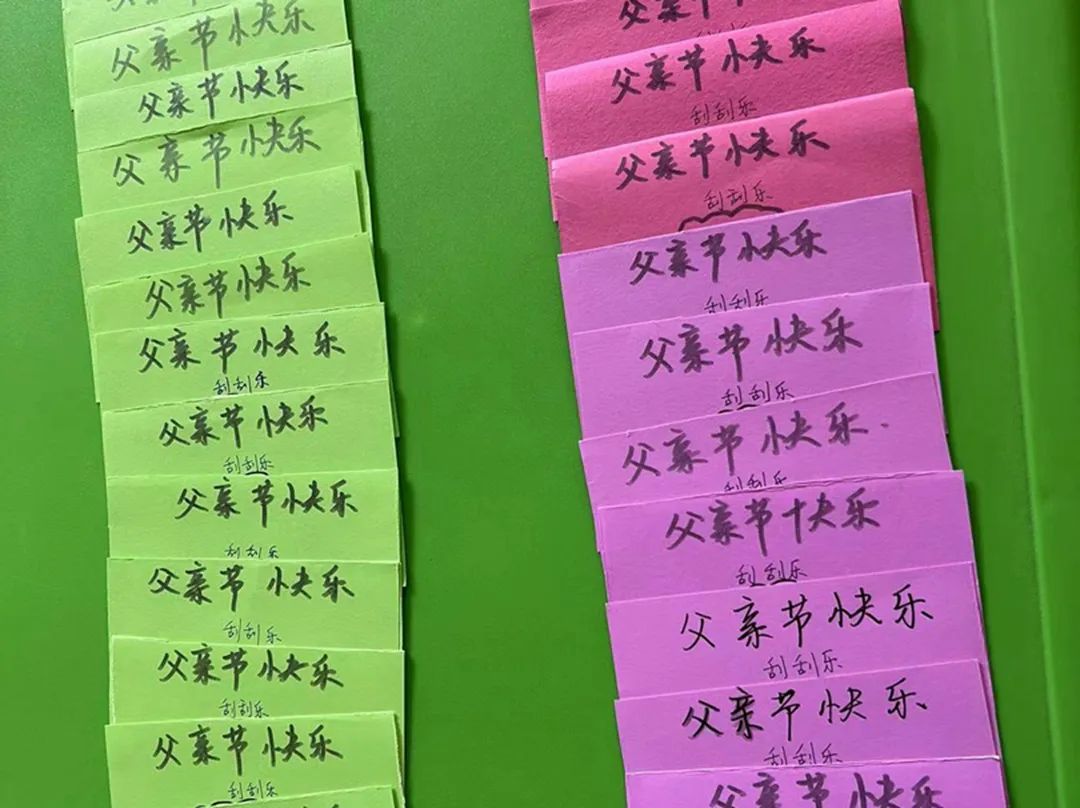 父亲节快乐
父亲节快乐
父亲节快乐
父亲节快乐
父亲节快乐
父亲节快乐
刮刮乐
父亲节快乐
刮刮乐
父亲节快乐
刮刮乐
父亲节快乐
刮刮乐
父亲节快乐
刮刮乐
父亲节快乐
刮刮乐
父亲节快乐
刮刮乐
父亲节快乐
刮刮乐
父亲节快乐
刮刮乐
父亲节快乐
刮刮乐
父亲节快乐
刮刮乐
父亲节快乐
刮刮乐
父亲节快乐
刮刮乐
父亲节快乐
刮刮乐
父亲节快乐
刮刮乐
父亲节快乐